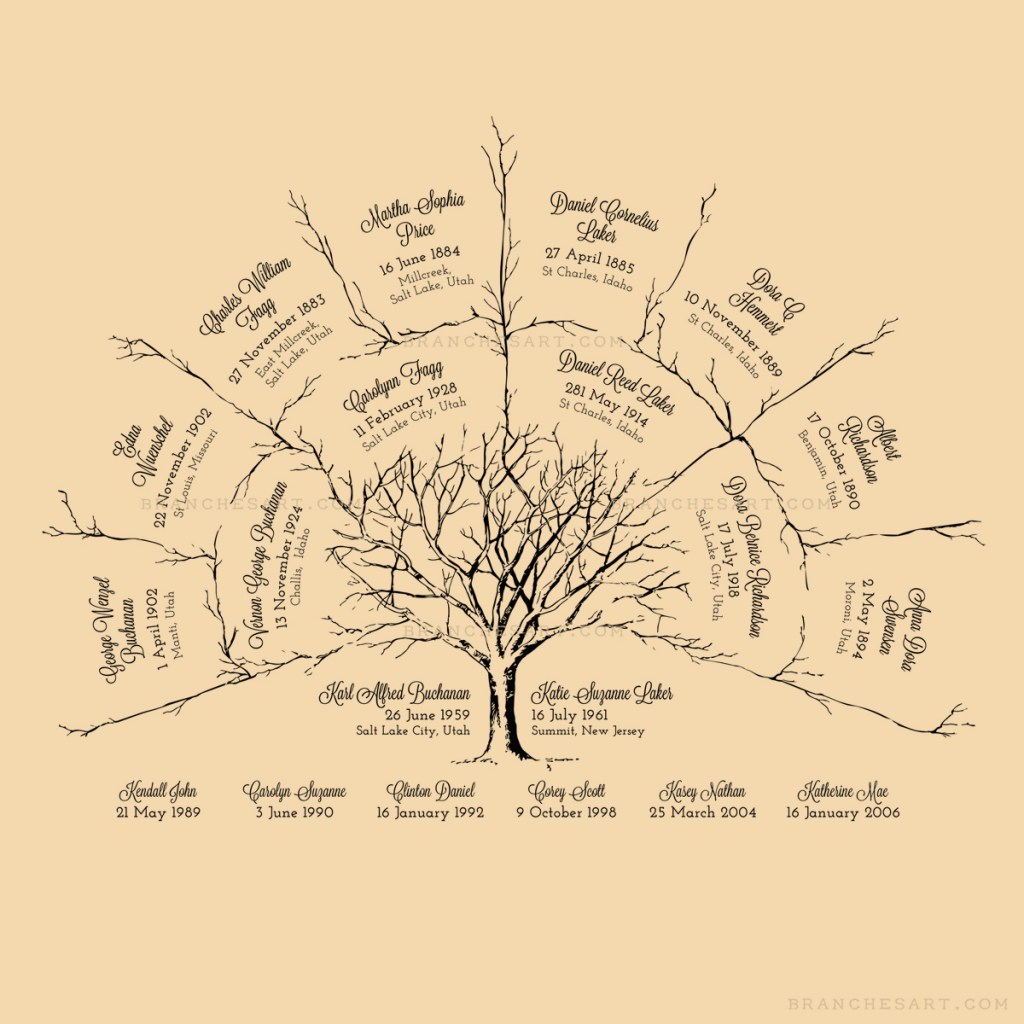 George Wenzel
Buchanan
1 April 1902
Manti, Utah
Edna
Wuenschel
22 November 1902
St Louis, Missouri
Charles William
Fagg
27 November 1883
East Millcreek,
Salt Lake, Utah
Martha Sophia
Price
16 June 1884
Millcreek,
Salt Lake, Utah
Daniel Cornelius
Laker
27 April 1885
St Charles, Idaho
Dora C
Hemmert
10 November 1889
St Charles, Idaho
Albert
Richardson
17 October 1890
Benjamin, Utah
Anna Dora
Swensen
2 May 1894
Moroni, Utah
Vernon George Buchanan
13 November 1924
Challis, Idaho
Carolynn Fagg
11 February 1928
Salt Lake City, Utah
Daniel Reed Laker
281 May 1914
St Charles, Idaho
Dora Bernice Richardson
17 July 1918
Salt Lake City, Utah
BRANCHESART.COM
BRANCHESART.COM
BRANCHESART.COM
BRANCHESART.COM
Karl Alfred Buchanan
26 June 1959
Salt Lake City, Utah
Katie Suzanne Laker
16 July 1961
Summit, New Jersey
Kendall John
21 May 1989
Carolyn Suzanne
3 June 1990
Clinton Daniel
16 January 1992
Corey Scott
9 October 1998
Kasey Nathan
25 March 2004
Katherine Mae
16 January 2006
BRANCHESART.COM